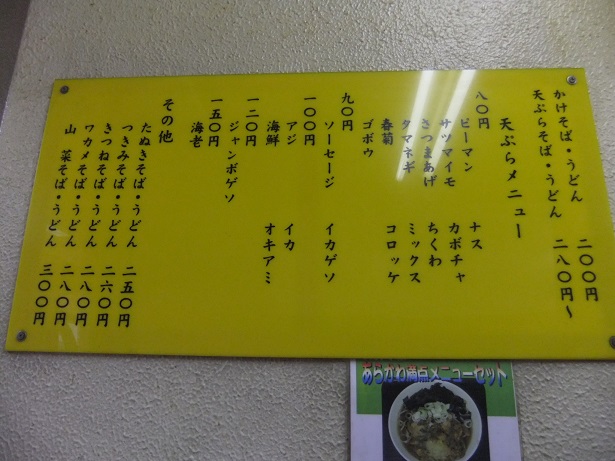 かけそば・うどん 二〇〇円
天ぷらそば・うどん 二八〇円〜
天ぷらメニュー
八〇円
ピーマン ナス
サツマイモ カボチャ
さつまあげ ちくわ
タマネギ ミックス
春菊 コロッケ
ゴボウ
九〇円
ソーセージ イカゲソ
一〇〇円
アジ イカ
海鮮 オキアミ
一二〇円
ジャンボゲソ
一五〇円
海老
その他
たぬきそば・うどん 二五〇円
つきみそば・うどん 二六〇円
きつねそば・うどん 二八〇円
ワカメそば・うどん 二八〇円
山菜そば・うどん 三〇〇円
あらかわ満点メニューセット